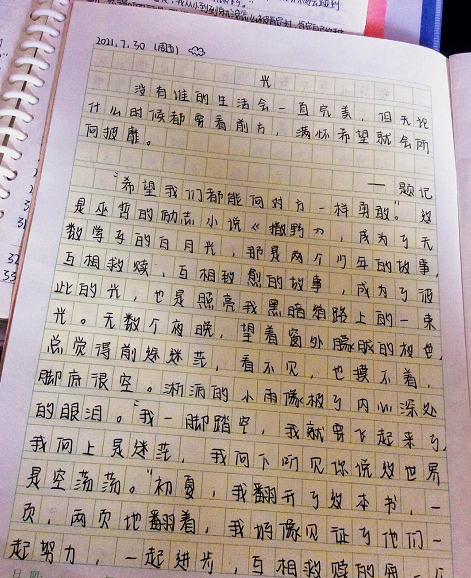 2021.7.30 (周五)
光
没有谁的生活会一直完美，但无论
什么时候都要看前方，满怀希望就会所
向披靡。
——题记
“希望我们都能向对方一样勇敢。”这
是巫哲的励志小说《撒野》，成为了无
数学子的白月光，那是两个少年的故事，
互相救赎，互相救愈的故事，成为了彼
此的光，也是照亮我黑暗的路上的一束
光。无数个夜晚，望着窗外朦胧的夜色，
总觉得前途迷茫，看不见，也摸不着，
脚底很空。淅沥的小雨像极了内心深处
的眼泪。“我一脚踏空，我就要飞起来了，
我向上是迷茫，我向下听见你说这世界
是空荡荡。”初夏，我翻开了这本书，一
页，两页地翻着，我好像见证了他们一
起努力，一起进步，互相救赎的每一
日期